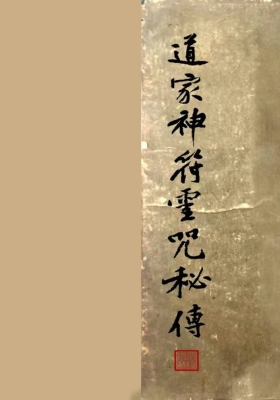 道家神符靈咒秘傳